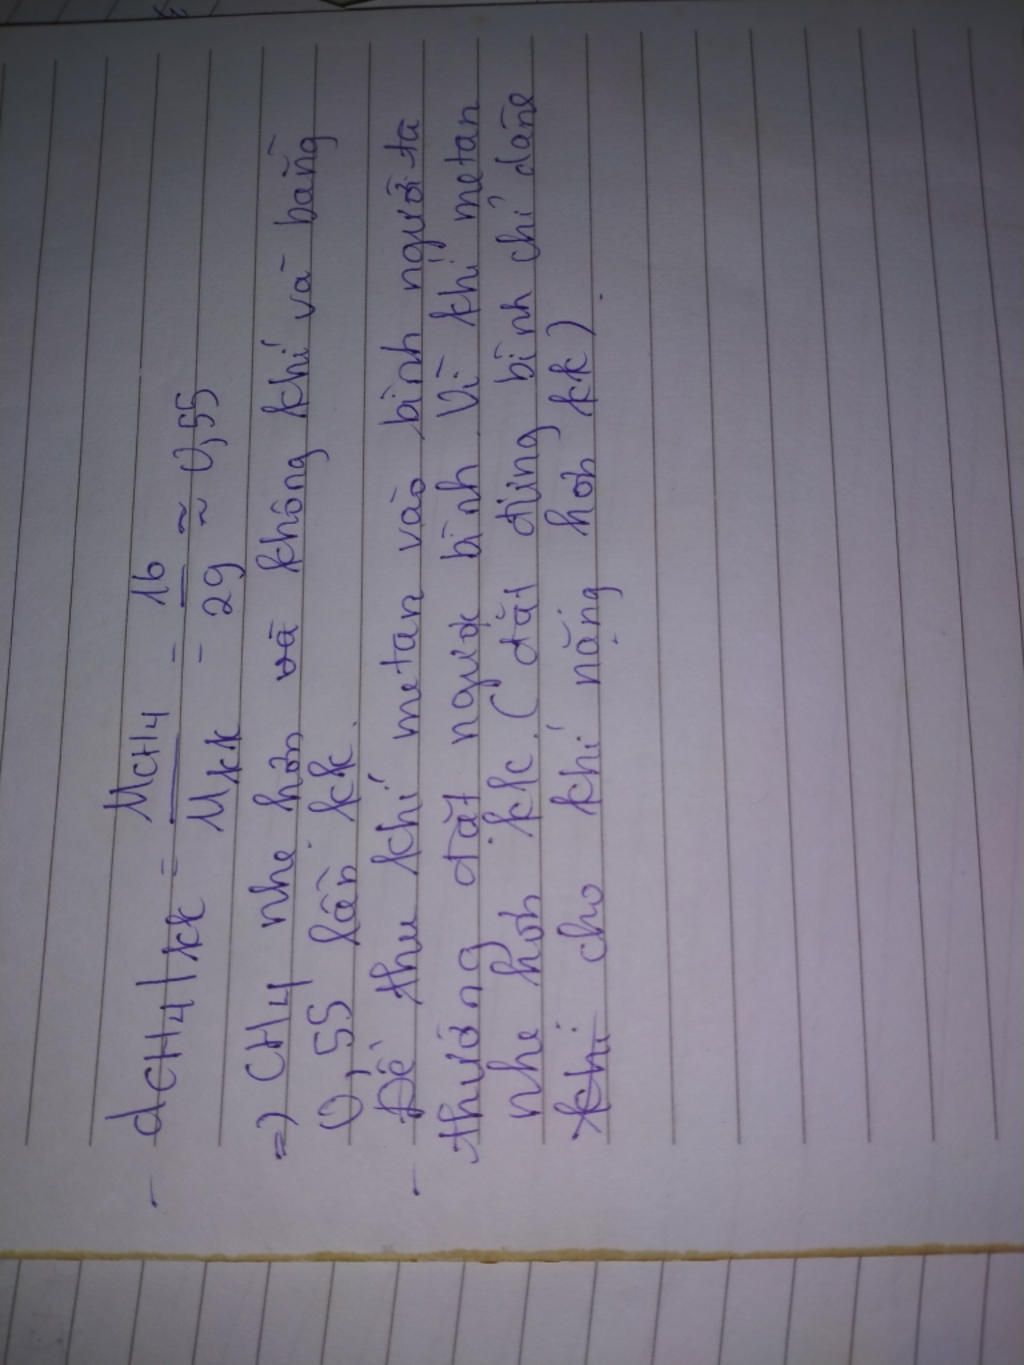 - dCH4/kk = MCH4/Mkk = 16/29 ≈ 0,55
=) CH4 nhẹ hơn và không khí và bằng
0,55 lần kk.
- Để thu khí metan vào bình người ta
thường đặt ngược bình. Vì khí metan
nhẹ hơn kk. (đặt đứng bình chỉ dành
khi cho khí nặng hơn kk).